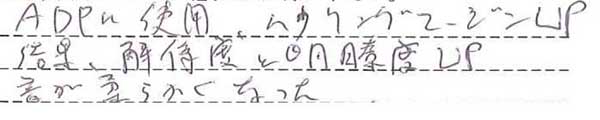 ADPに使用、ハウリングマージンUP
結果、解像度と明瞭度UP
音が柔らかくなった